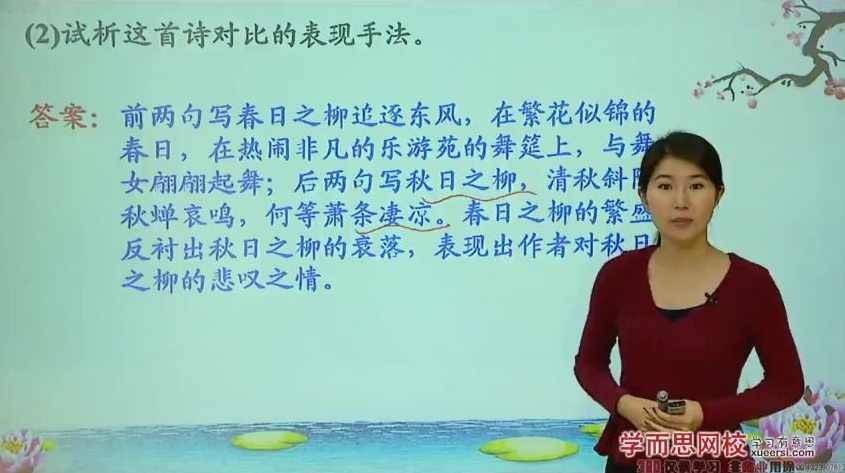 (2)试析这首诗对比的表现手法。
答案：前两句写春日之柳追逐东风，在繁花似锦的
春日，在热闹非凡的乐游苑的舞筵上，与舞
女翩翩起舞；后两句写秋日之柳，清秋斜
秋蝉哀鸣，何等萧条凄凉。春日之柳的繁盛
反衬出秋日之柳的衰落，表现出作者对秋日
之柳的悲叹之情。
学而思网校
学习有意思
xueersi.com